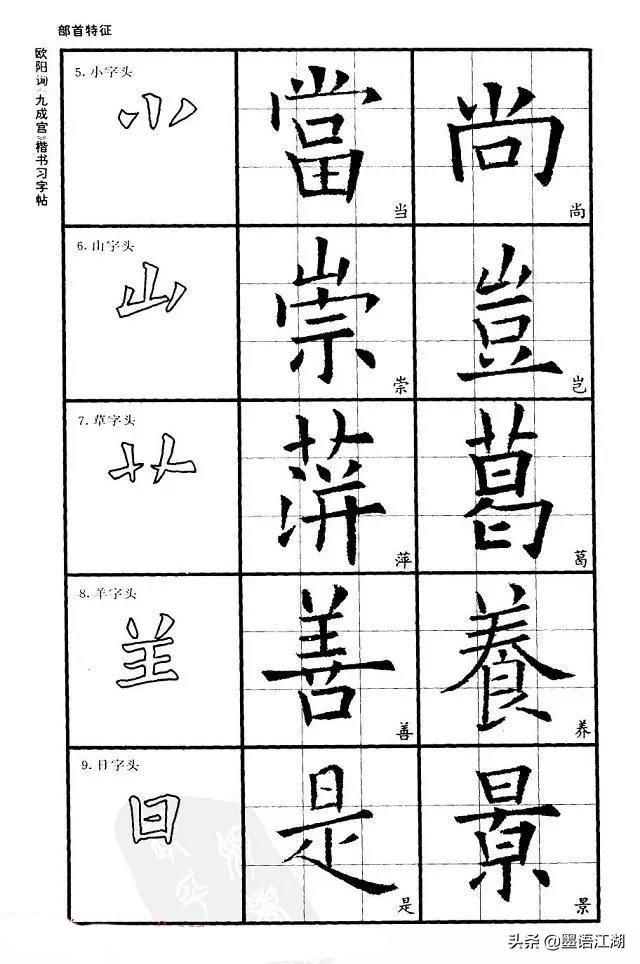 部首特征
欧阳询《九成宫》楷书习字帖
5.小字头
當
当
尚
尚
6.山字头
山
崇
崇
豈
岂
7.草字头
萍
萍
葛
葛
8.羊字头
善
善
養
养
9.日字头
日
是
是
景
景
头条 @墨语江湖